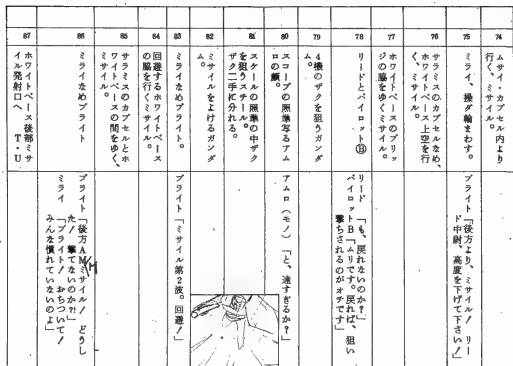 74
ムサイ・カプセル内より
行く、ミサイル。
75
ミライ、操ダ輪まわす。
ブライト「後方より、ミサイル! リー
ド中尉、高度を下げて下さい!」
76
サラミスのカプセルなめ、
ホワイトベース上空を行
く、ミサイル。
77
ホワイトベースのブリッ
ジの脇をゆくミサイル。
78
リードとパイロットⒷ
リード「も、戻れないのか?」
パイロットB「ムリです。戻れば、狙い
撃ちされるのがオチです」
79
4機のザクを狙うガンダ
ム。
80
スコープの照準写るアム
ロの顔。
アムロ(モノ)「と、遠すぎるか?」
81
スケールの照準の中ザク
を狙うスチール。
ザク二手に分れる。
82
ミサイルをよけるガンダ
ム。
83
ミライなめブライト。
ブライト「ミサイル第2波。回避!」
84
回避するホワイトベース
の脇を行くミサイル。
85
サラミスのカプセルとホ
ワイトベースの間をゆく、
ミサイル。
86
ミライなめブライト
ブライト「後方AMミサイル! どうし
た! 撃てないのか?!」
M
ミライ「ブライト! おちついて!
みんな慣れていないのよ」
87
ホワイトベース後部ミサ
イル発射口へ T・U